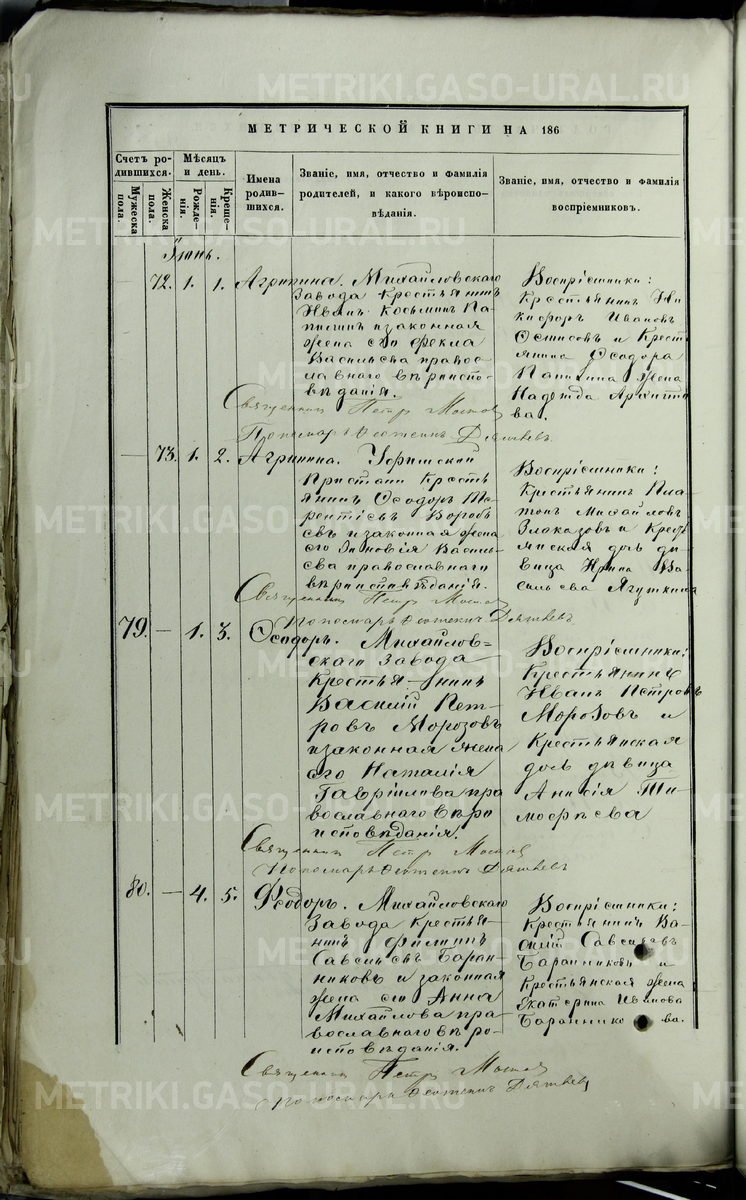 METRIKI.GASO-URAL.RU
МЕТРИЧЕСКОЙ КНИГИ НА 186
Счетъ ро-
дившихся.
Мужеска
пола.
Женска
пола.
Мѣсяцъ
и день.
Рожде-
нія.
Креще-
нія.
Имена
родив-
шихся.
Званіе, имя, отчество и фамилія
родителей, и какого вѣроиспо-
вѣданія.
Званіе, имя, отчество и фамилія
воспріемниковъ.
Іюнь.
72. 1. 1. Агрипина. Михайловскаго
Завода Крестьянинъ
Иванъ Козьминъ Па-
пилинъ и законная
жена его Фекла
Васильева правос-
лавнаго вѣриспо-
вѣданія.
Воспріемники:
Крестьянинъ Ни
кифоръ Ивановъ
и Крест
янина Ѳеодора
Папилина жена
Надежда Архипо
ва.
Священникъ Петръ
Пономарь
— 73. 1. 2. Агрипина. Уфимской
Пристани Кресть
янинъ Ѳеодоръ Те-
рентьевъ Воробь
евъ и законная жена
его Зиновія Василь-
ева православнаго
вѣриспиевѣданія.
Воспріемники:
Крестьянинъ Пла-
тонъ Михайловъ
Злоказовъ и Крест
янская дочь дѣ-
вица Ирина Ва-
сильева Ягуткина
Священникъ Петръ
Пономарь
79. — 1. 3. Ѳеодоръ. Михайлов=
скаго Завода
Крестья—нинъ
Василій Пет-
ровъ Морозовъ
и законная жена
его Наталія
Гаврилова пра
вославнаго вѣро
исповѣданія.
Воспріемники:
Крестьянинъ
Иванъ Петровъ
Морозовъ и
Крестьянская
дочь дѣвица
Анисія Ти-
мофеева
Священникъ Петръ
Пономарь
80. — 4. 5. Феодоръ. Михайловскаго
Завода Крестья-
нинъ Филипъ
Савельевъ Баран-
никовъ и законная
жена его Анна
Михайлова пра-
вославнаго вѣро-
исповѣданія.
Воспріемники:
Крестьянинъ Ва-
силій Савельевъ
Баранниковъ и
Крестьянская жена
Екатерина Иванова
Бараннико ва.
Священникъ Петръ
Пономарь